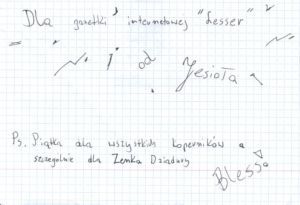 Dla gazetki internetowej "Lesser"
od Jesioła
Ps. Piątka dla wszystkich koperników a
szczególnie dla Zenka Dziadury
Blessa